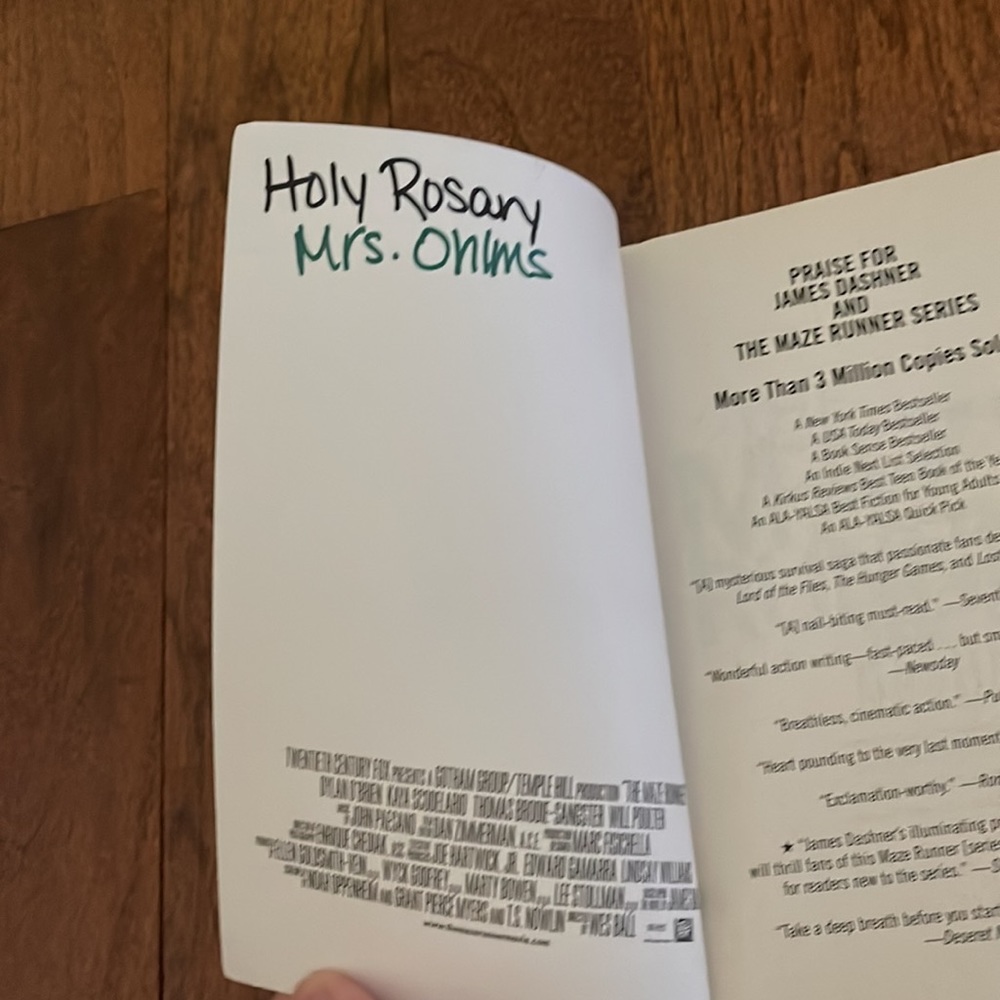 Holy Rosary
Mrs. Ohlms
TWENTIETH CENTURY FOX PRESENTS A GOTHAM GROUP/TEMPLE HILL PRODUCTION "THE MAZE RUNNER
DYLAN O'BRIEN KAYA SCODELARIO THOMAS BRODIE-SANGSTER WILL POULTER
JOHN PAESANO DAN ZIMMERMAN, A.C.E. MARC FISICHELLA
ENRIQUE CHEDIAK, JOE HARTWICK, JR. EDWARD GAMARRA LINDSAY WILLIAMS
ELLEN GOLDSMITH-VEIN WYCK GODFREY MARTY BOWEN LEE STOLLMAN
NOAH OPPENHEIM AND GRANT PIERCE MYERS AND T.S. NOWLIN WES BALL
PRAISE FOR
JAMES DASHNER
AND
THE MAZE RUNNER SERIES
More Than 3 Million Copies Sol
A New York Times Bestseller
A USA Today Bestseller
A Book Sense Bestseller
An Indie Next List Selection
A Kirkus Reviews Best Teen Book of the Ye
An ALA-YALSA Best Fiction for Young Adults
An ALA-YALSA Quick Pick
"[A] mysterious survival saga that passionate fans de
Lord of the Flies, The Hunger Games, and Lost
"[A] nail-biting must-read." —Sevent
"Wonderful action writing—fast-paced . . . but sm
—Newsday
"Breathless, cinematic action." —Pu
"Heart pounding to the very last moment
"Exclamation-worthy." —Rom
★ "James Dashner's illuminating p
will thrill fans of this Maze Runner [series
for readers new to the series." —S
"Take a deep breath before you start
—Deseret